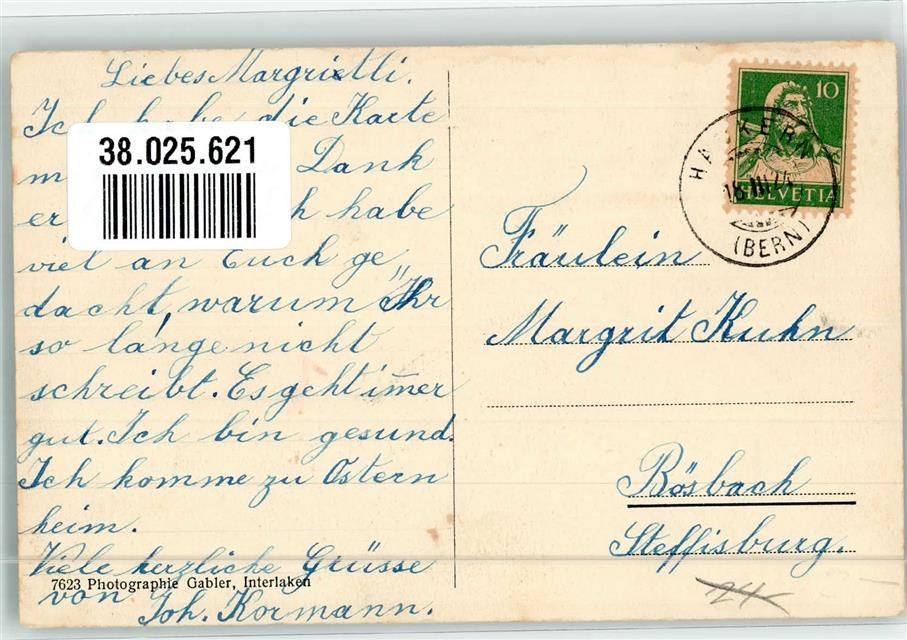 Liebes Margrietli.
Ich habe die Karte
38.025.621
Dank
er habe
viel an Euch ge
dacht, warum Ihr
so lange nicht
schreibt. Es geht im̄er
gut. Ich bin gesund.
Ich komme zu Ostern
heim.
Viele herzliche Grüsse
7623 Photographie Gabler, Interlaken
von Joh. Kormann.
10
HELVETIA
18.III.24
(BERN)
Fräulein
Margrit Kuhn
Rösbach
Steffisburg.
24